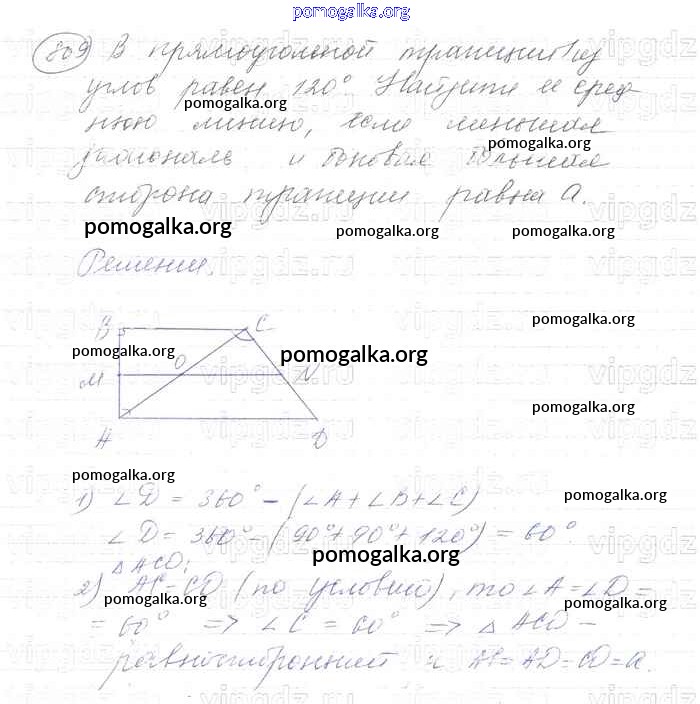 pomogalka.org
809 В прямоугольной трапеции один из
углов равен 120°. Найдите ее сред-
pomogalka.org
нюю линию, если меньшая
pomogalka.org
диагональ и боковая большая
сторона трапеции равна а.
pomogalka.org pomogalka.org pomogalka.org
Решение.
pomogalka.org
В С
pomogalka.org
О
pomogalka.org
М N
pomogalka.org
А D
pomogalka.org
1) ∠D = 360° - (∠A + ∠B + ∠C)
pomogalka.org
∠D = 360° - (90° + 90° + 120°) = 60°.
pomogalka.org
△ ACD;
2) AC = CD (по условию), то ∠A = ∠D =
pomogalka.org pomogalka.org
= 60° => ∠C = 60° => △ ACD -
равносторонний и AC = AD = CD = a.